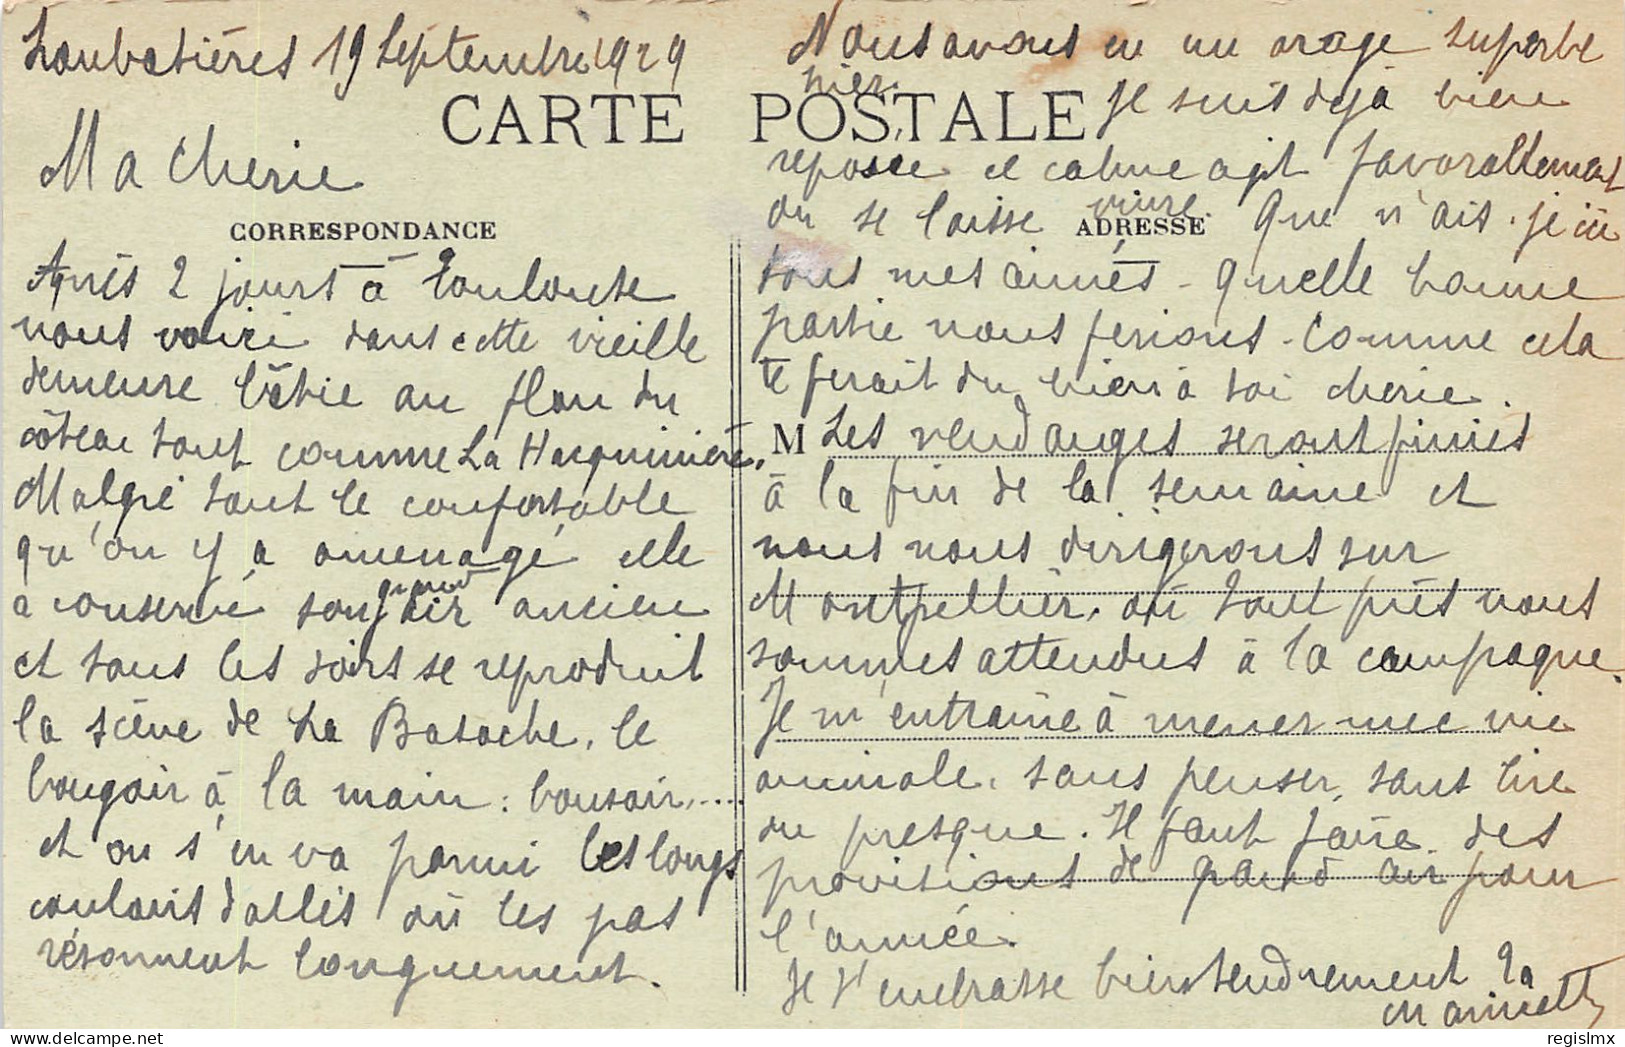 Loubatières 19 Septembre 1929
CARTE POSTALE
Ma Cherie
CORRESPONDANCE
Après 2 jours à Toulouse
nous voici dans cette vieille
demeure bâtie au flan du
côteau tout comme La Hacquinière,
Malgré tout le confortable
qu'on y a amenagé elle
a conservé son grand air ancien
et tous les soirs se reproduit
la scène de La Basoche, le
bougoir à la main : bonsoir.....
et on s'en va parmi les longs
couloirs dallés où les pas
résonnent longuement.
Nous avons eu un orage superbe
hier. Je suis déjà bien
reposée ce calme agit favorablement
on se laisse vivre. Que n'ais-je ici
ADRESSE
tous mes aimés - Quelle bonne
partie nous ferions - Comme cela
te ferait du bien à toi cherie.
M Les vendanges seront finies
à la fin de la semaine et
nous nous dirigerons sur
Montpellier, où tout près nous
sommes attendus à la campagne.
Je m'entraîne à mener une vie
animale, sans penser, sans lire
ou presque. Il faut faire des
provisions de grand air pour
l'année.
Je t'embrasse bien tendrement Ta
Marinette
regislmx